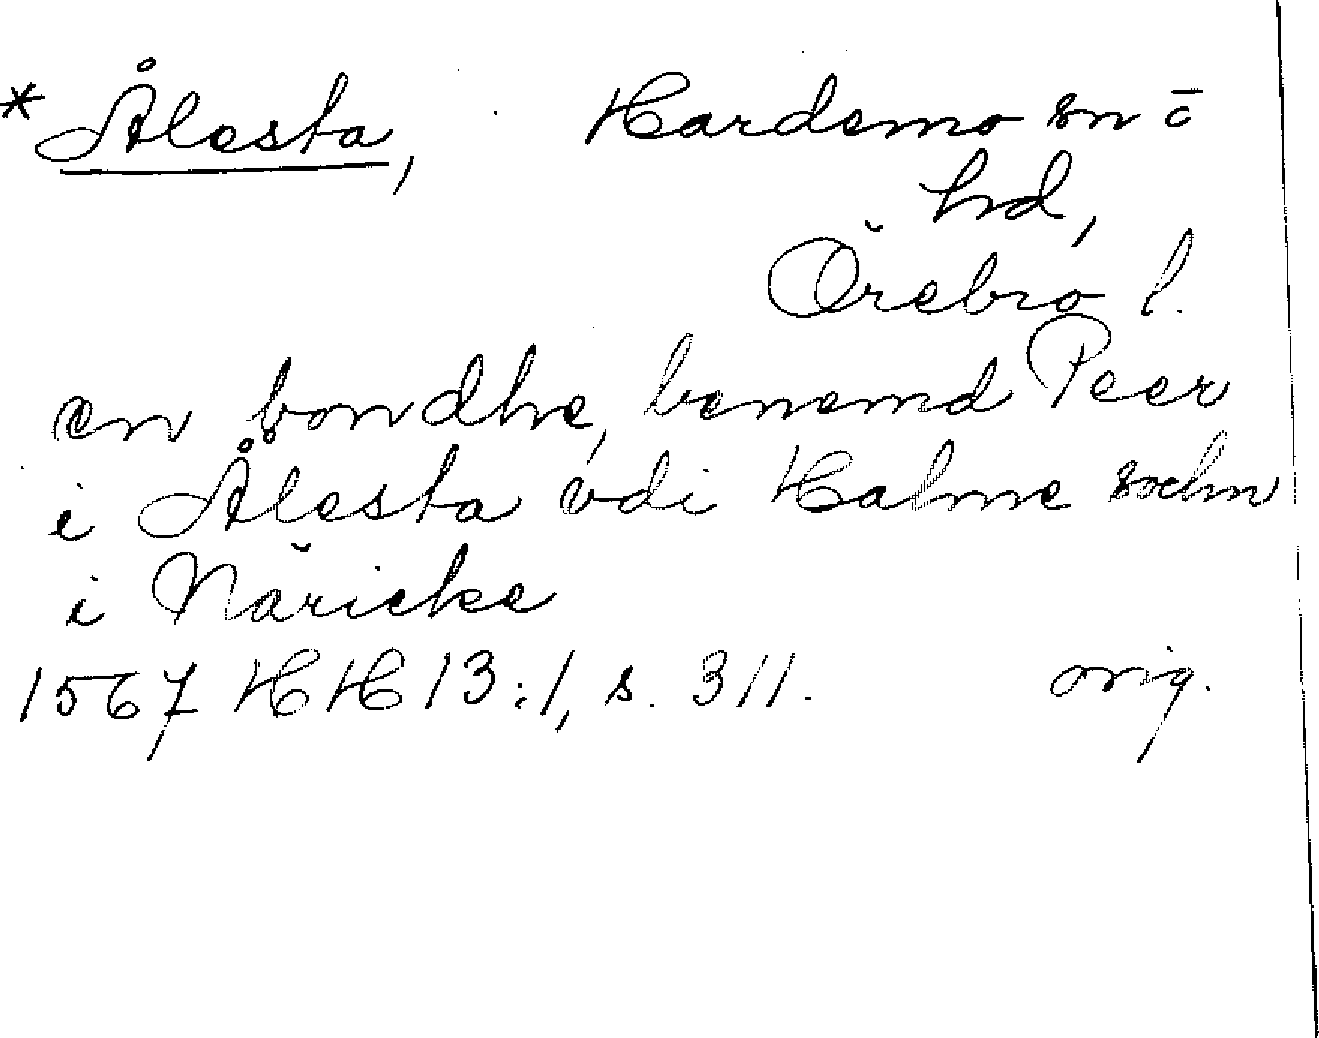 * Ålesta, Hardemo sn o
hd,
Örebro l.
en bondhe, benemd Peer
i Ålesta vdi Halme sochn
i Näricke
1567 HH 13:1, s. 311. orig.